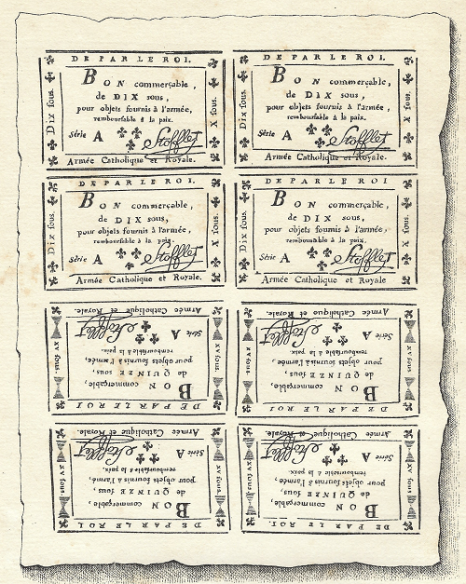 DE PAR LE ROI.
Dix sous.
BON commerçable,
de DIX sous,
pour objets fournis à l'armée,
remboursable à la paix.
Série A Stofflet
X sous.
Armée Catholique et Royale.
DE PAR LE ROI.
Dix sous.
BON commerçable,
de DIX sous,
pour objets fournis à l'armée,
remboursable à la paix.
Série A Stofflet
X sous.
Armée Catholique et Royale.
DE PAR LE ROI.
Dix sous.
BON commerçable,
de DIX sous,
pour objets fournis à l'armée,
remboursable à la paix.
Série A Stofflet
X sous.
Armée Catholique et Royale.
DE PAR LE ROI
Dix sous.
BON commerçable,
de DIX sous,
pour objets fournis à l'armée,
remboursable à la paix.
Série A Stofflet
X sous.
Armée Catholique et Royale
DE PAR LE ROI
XV sous.
BON commerçable,
de QUINZE sous,
pour objets fournis à l'armée,
remboursable à la paix.
Série A Stofflet
XV sous.
Armée Catholique et Royale.
DE PAR LE ROI
XV sous.
BON commerçable,
de QUINZE sous,
pour objets fournis à l'armée,
remboursable à la paix.
Série A Stofflet
XV sous.
Armée Catholique et Royale.
DE PAR LE ROI.
XV sous
BON commerçable,
de QUINZE sous,
pour objets fournis à l'armé,
remboursable à la paix.
Série A Stofflet
XV sous
Armée Catholique et Royale.
DE PAR LE ROI.
XV sous
BON commerçable,
de QUINZE sous,
pour objets fournis à l'armée,
remboursable à la paix.
Série A Stofflet
XV sous
Armée Catholique et Royale.